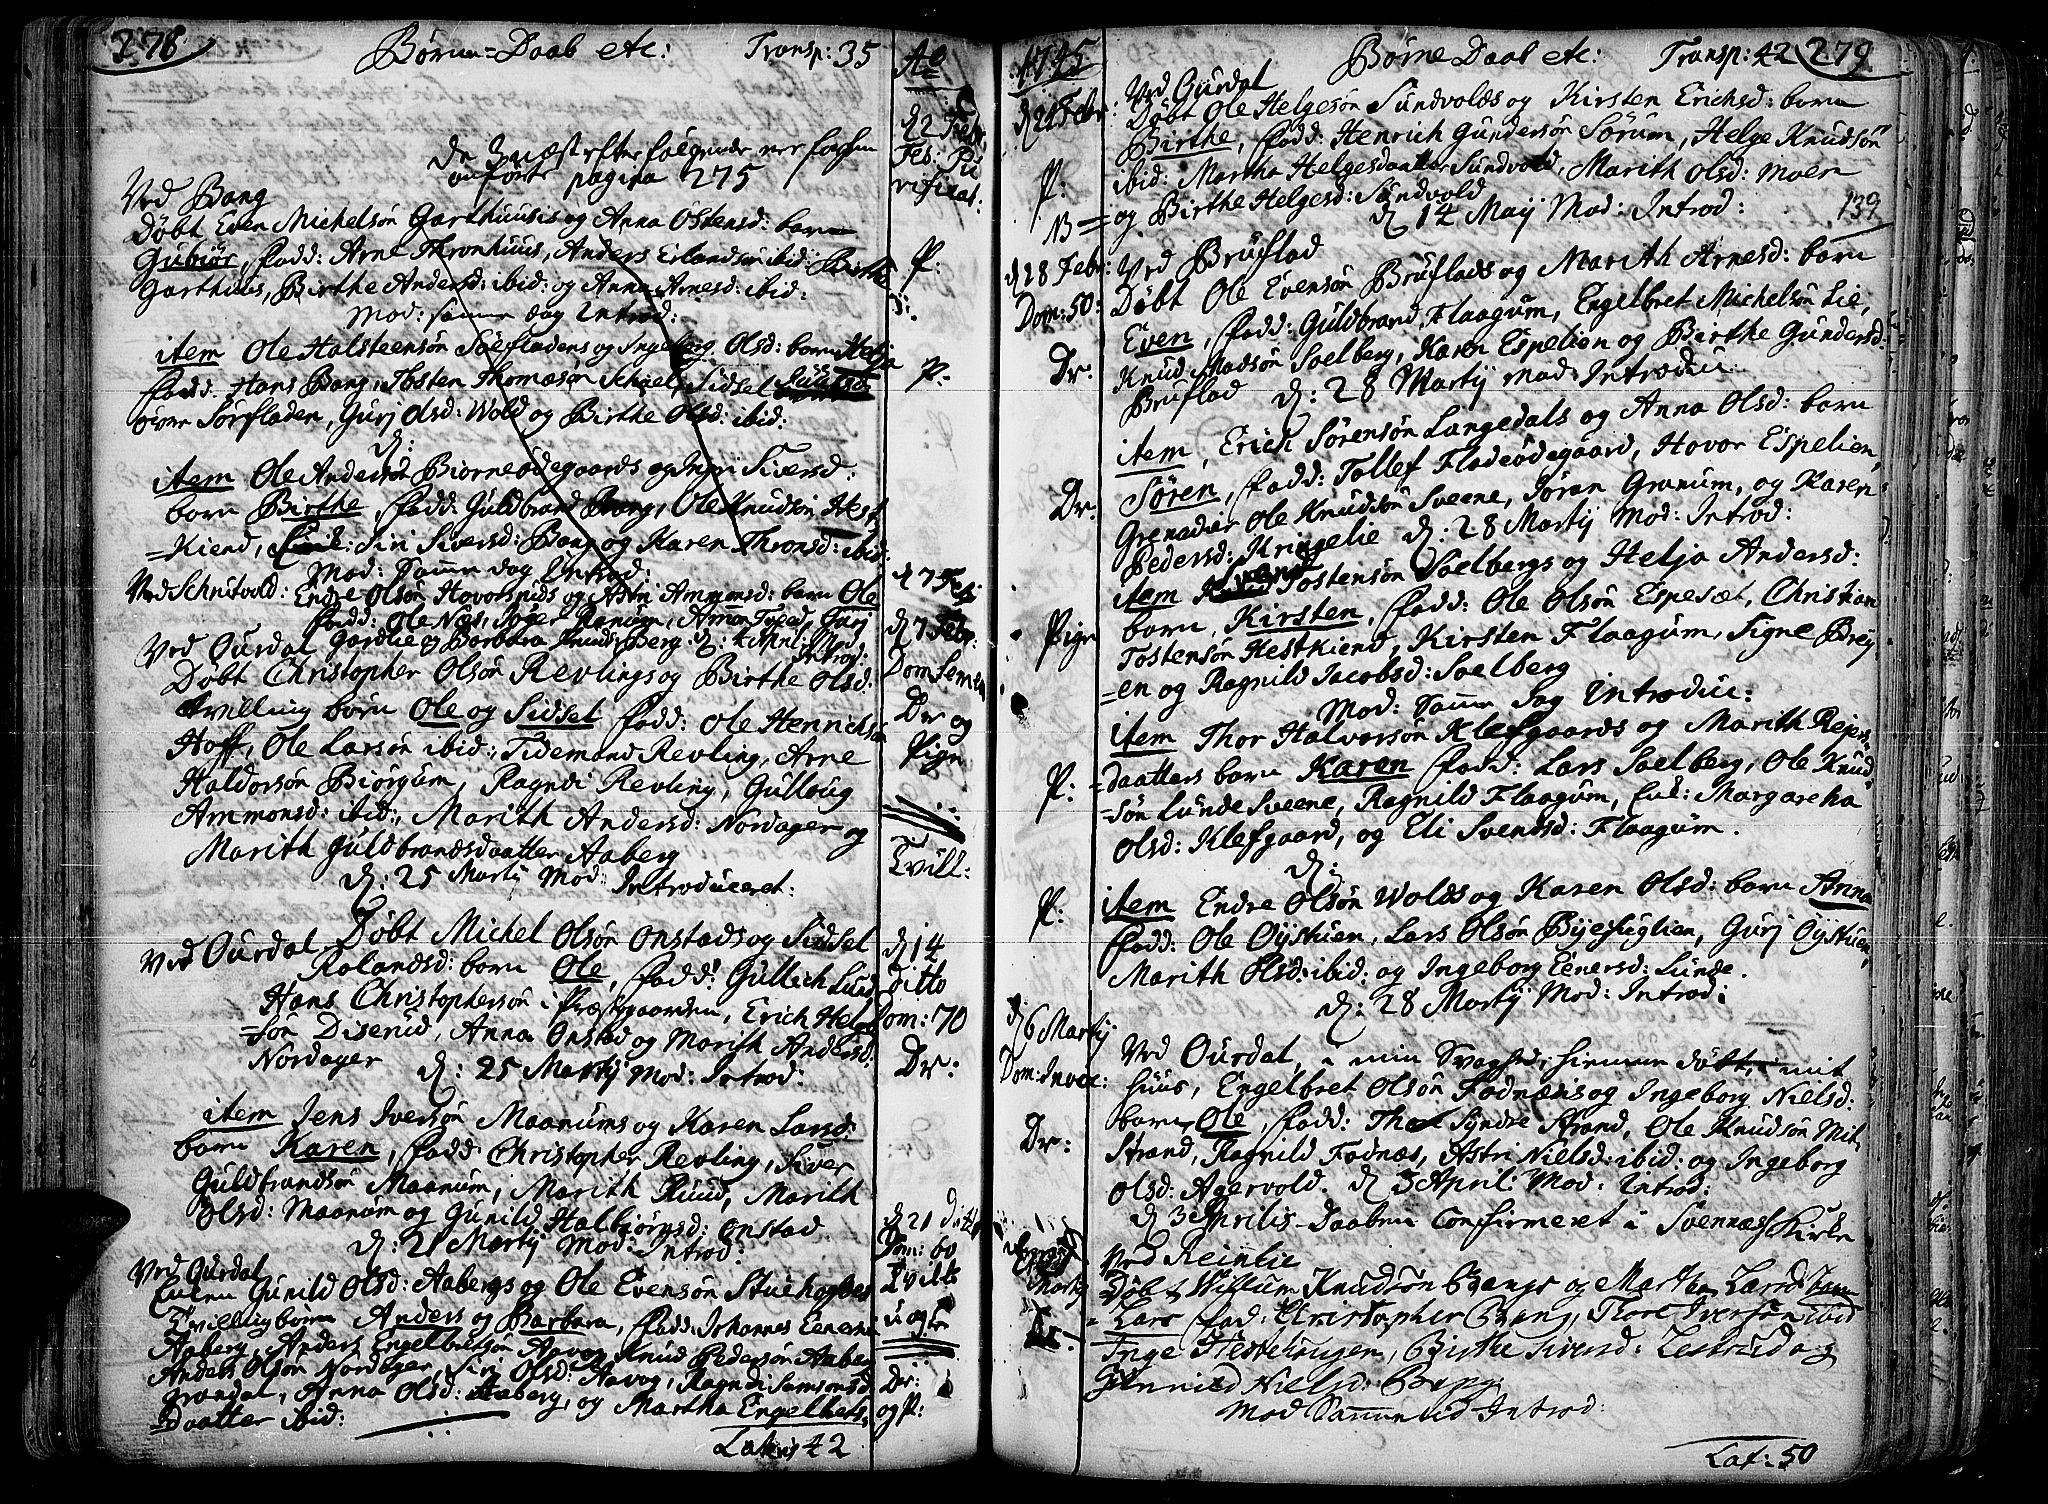 278. Børne-Daab etc: Transp: 35 Ao
d 2 Febr:
Fes: Pu
rificat:
De 3 næst efter følgende ere forhen
anførte pagina 275
Ved Bang
Døbt Even Michelsøn Garthuusis og Anna Østensd: barn
Gubiør, fadd: Arne Thronhuus, Anders Erlandsøn ibid: Birthe
Garthuus, Birthe Andersd: ibid: og Anna Arnesd: ibid:
Mod: samme dag Introd:
P:
item Ole Halsteensøn Sørfladens og Ingeborg Olsd: barn Helja
fadd: Hans Bang, Tosten Thomæsøn Sidsel
øvre Sørfladen, Gurj Olsd: Wold og Birthe Olsd: ibid:
d:
P:
item Ole Anders: Biørneødegaards og Ingri Siversd:
barn Birthe, fadd: Guldbrand Bang, Ole Knudsøn Hest
=Kiend, Siri Siversd: Bang og Karen Thronsd: ibid:
Mod: Samme dag Introd:
Ved Schnitvold: Endre Olsøn Hovorsrud og Astri Ammonsd: barn Ole
d 7 Feb:
fadd: Ole Næs, Ranum, Amon Gurj
Gardlie og Barbara Knuds: Berg d: Mod
Introd:
Ved Ourdal
d 7 Febr:
Dom Semen
Døbt Christopher Olsøn Revlings og Birthe Olsd:
tvilling børn Ole og Sidsel fadd: Ole Henrichsøn
Hoff, Ole Larsøn ibid:, Tidemand Revling, Arne
Haldorsøn Biørgum, Ragndi Revling, Gulloug
Ammonsd: ibid:, Marith Andersd: Nordager og
Marith Guldbrandsdaatter Aaberg
d: 25 Martij Mod: Introduceret:
Dr og
Pige
Tvill:
Ved Ourdal Døbt Michel Olsøn Onstads og Sidsel
d 14
Ditto
Dom: 70
Rolandsd: barn Ole, fadd: Gullich Lund
Hans Christophersøn i Præstgaarden, Erich Helge
=søn Diserud, Anna Onstad og Marith Andersd:
Nordager d: 25 Martij Mod: Introd:
Dr:
item Jens Iversøn Maanums og Karen Larsd:
barn Karen, fadd: Christopher Revling, Siver
Guldbrandsøn Maanum, Marith Ruud, Marith
Olsd: Maanum og Gunild Halbjørnsd: Onstad
d: 21 Martij Mod: Introd:
Ved Ourdal
d 21 dito
Dom: 60
Gunild Olsd: Aabergs og Ole Evensøn Stuehagbes
Tvillingbørn Anders og Barbara, fadd: Johannes Eenersøn
Aaberg, Anders Engelbretsøn Aavog, Knud Pedersøn Aaberg
Anders Olsøn Nordager, Siri Olsd: Aavog, Ragndi Samsonsd
Grøndal, Anna Olsd: Aaberg, og Martha Engelbrets
=daatter ibid:
Dr:
og P:
Lateris 42
1745 Børne Daab etc: Transp: 42 279
d 21 Febr:
Ved Gurdal
Døbt Ole Helgesøn Sundvolds og Kirsten Erichsd: barn
Birthe, fadd: Henrich Gundersøn Sørum, Helge Knudsøn
ibid: Martha Helgesdaatter Sundvold, Marith Olsd: Moen
og Birthe Helgesd: Sundvold
d 14 Maij Mod: Introd: 139
P:
NB=
d 28 Febr:
Dom: 50:
Ved Bruflad
Døbt Ole Evensøn Bruflads og Marith Arnesd: barn
Even, fadd: Guldbrand Flaagum, Engelbret Michelsøn Lie,
Knud Madsøn Soelberg, Karen Espelien og Birthe Gundersd:
Bruflad d: 28 Martij Mod: Introdu:
Dr:
item, Erich Sørensøn Langedals og Anna Olsd: barn
Søren, fadd: Tollef Fladeødegaard, Hovor Espelien,
Grenadier Ole Knudsøn Sveene, Jøran Granum, og Karen
Pedersd: Kringelie d: 28 Martij Mod: Introd:
Dr.
item Svend Tostensøn Soelbergs og Helja Andersd:
barn, Kirsten, fadd: Ole Olsøn Espesæt, Christian
Tostensøn Hestkiend, Kirsten Flaagum, Signe Brey
=en og Ragnild Jacobsd: Soelberg
Mod: Samme dag Introduc:
Pige
item Thor Halvorsøn Klefgaards og Marith Rejers
=daatters barn Karen fadd: Lars Soelberg, Ole Knud
=søn Lunde Sveene, Ragnild Flaagum, Margaretha
Olsd: Klefgaard, og Eli Svendsd: Flaagum.
d:
P:
item Endre Olsøn Wolds og Karen Olsd: barn Anna
fadd: Ole Øystuen, Lars Olsøn Byefuglien, Gurj Øystuen,
Marith Olsd: ibid: og Ingeborg Eenersd: Lunde.
d: 28 Martij Mod: Introd:
P:
d 6 Martij
Dom: Invoc:
Ved Ourdal, i min Svaghed, hiemme døbt, i mit
huus, Engelbret Olsøn Fodnæsis og Ingeborg Nielsd:
barn Ole, fadd: Syndre Strand, Ole Knudsøn Mit
Strand, Ragnild Fodnæs, Astri Nielsd: ibid: og Ingeborg
Olsd: Agervold. d 3 April: Mod: Introd:
d 3 Aprilis Daaben Confirmeret i Svennæss Kirke
Dr:
Ved Reinlie
Døbt Willum Knudsøn Bangs og Marthe Larsd: barn
Lars fad: Christopher Bang, Thore Iversøn ibid
Inge Hestehaugen, Birthe Siversd: Lestrud og
Gunnild Nielsd: Bang
Mod Samme tid Introd:
Lat: 50